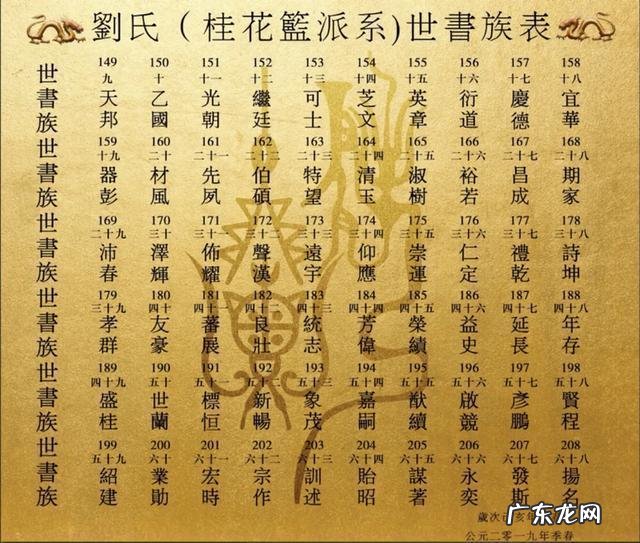 劉氏（桂花籃派系)世書族表
149 150 151 152 153 154 155 156 157 158
世 九 十 十一 十二 十三 十四 十五 十六 十七 十八
書 天 乙 光 繼 可 芝 英 衍 慶 宜
族 邦 國 朝 廷 士 文 章 道 德 華
159 160 161 162 163 164 165 166 167 168
世 十九 二十 二十一 二十二 二十三 二十四 二十五 二十六 二十七 二十八
書 器 材 先 伯 特 清 淑 裕 昌 期
族 彭 風 夙 碩 望 玉 樹 若 成 家
169 170 171 172 173 174 175 176 177 178
世 二十九 三十 三十一 三十二 三十三 三十四 三十五 三十六 三十七 三十八
書 沛 澤 佈 聲 遠 仰 崇 仁 禮 詩
族 春 輝 耀 漢 宇 應 運 定 乾 坤
179 180 181 182 183 184 185 186 187 188
世 三十九 四十 四十一 四十二 四十三 四十四 四十五 四十六 四十七 四十八
書 孝 友 蕃 良 統 芳 榮 益 延 年
族 群 豪 展 壯 志 偉 績 史 長 存
189 190 191 192 193 194 195 196 197 198
世 四十九 五十 五十一 五十二 五十三 五十四 五十五 五十六 五十七 五十八
書 盛 世 標 新 象 嘉 猷 啟 彥 賢
族 桂 蘭 恒 暢 茂 嗣 續 競 鵬 程
199 200 201 202 203 204 205 206 207 208
世 五十九 六十 六十一 六十二 六十三 六十四 六十五 六十六 六十七 六十八
書 紹 業 宏 宗 訓 貽 謀 永 發 揚
族 建 勛 時 作 述 昭 著 奕 斯 名
歲次己亥年
公元二零一九年季春
广东龙网